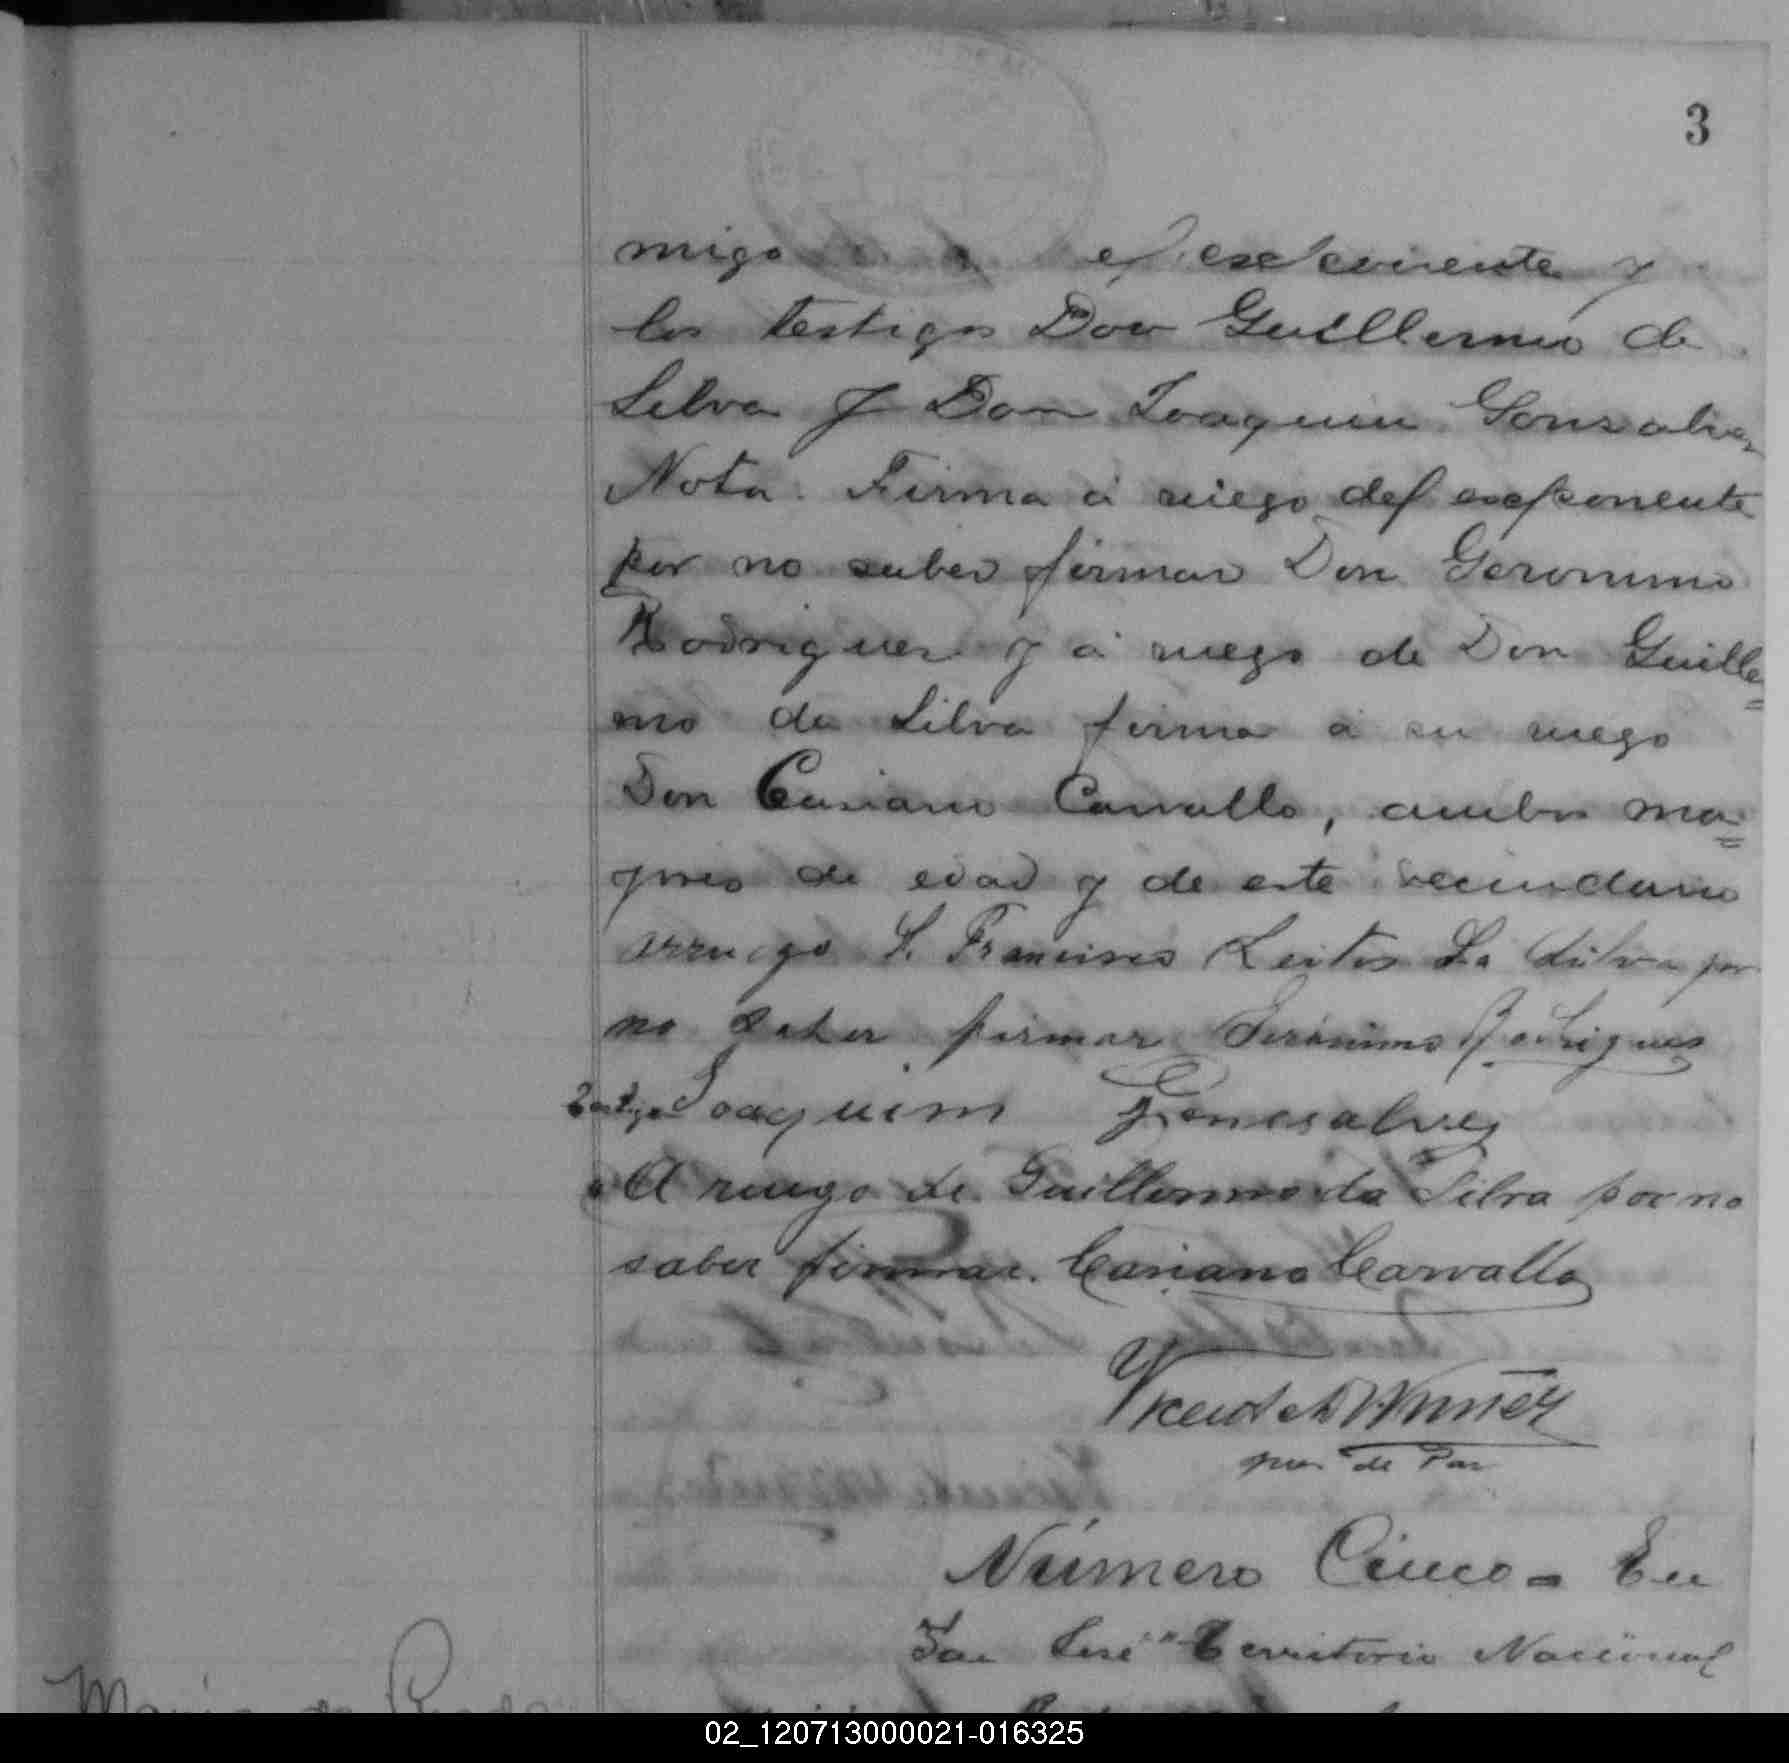 3
migo el exponente y
los testigos Don Guillermo de
Silva y Don Joaquin Gonsalves
Nota. Firma á ruego del exponente
por no saber firmar Don Geronimo
Rodriguez y á ruego de Don Guiller=
mo da Silva firma á su ruego
Don Casiano Carvallo, ambos ma=
yores de edad y de este vecindario
arruego S. Francisco Leites Da Silva por
no saber firmar Gerónimo Rodrigues
Testigo Joaquim Goncsalves
A ruego de Guillermo da Silva por no
saber firmar. Casiano Carvallo
Nuñez
juez de Paz
Número Cinco = En
San José "Territorio Nacional
María da
02_120713000021-016325